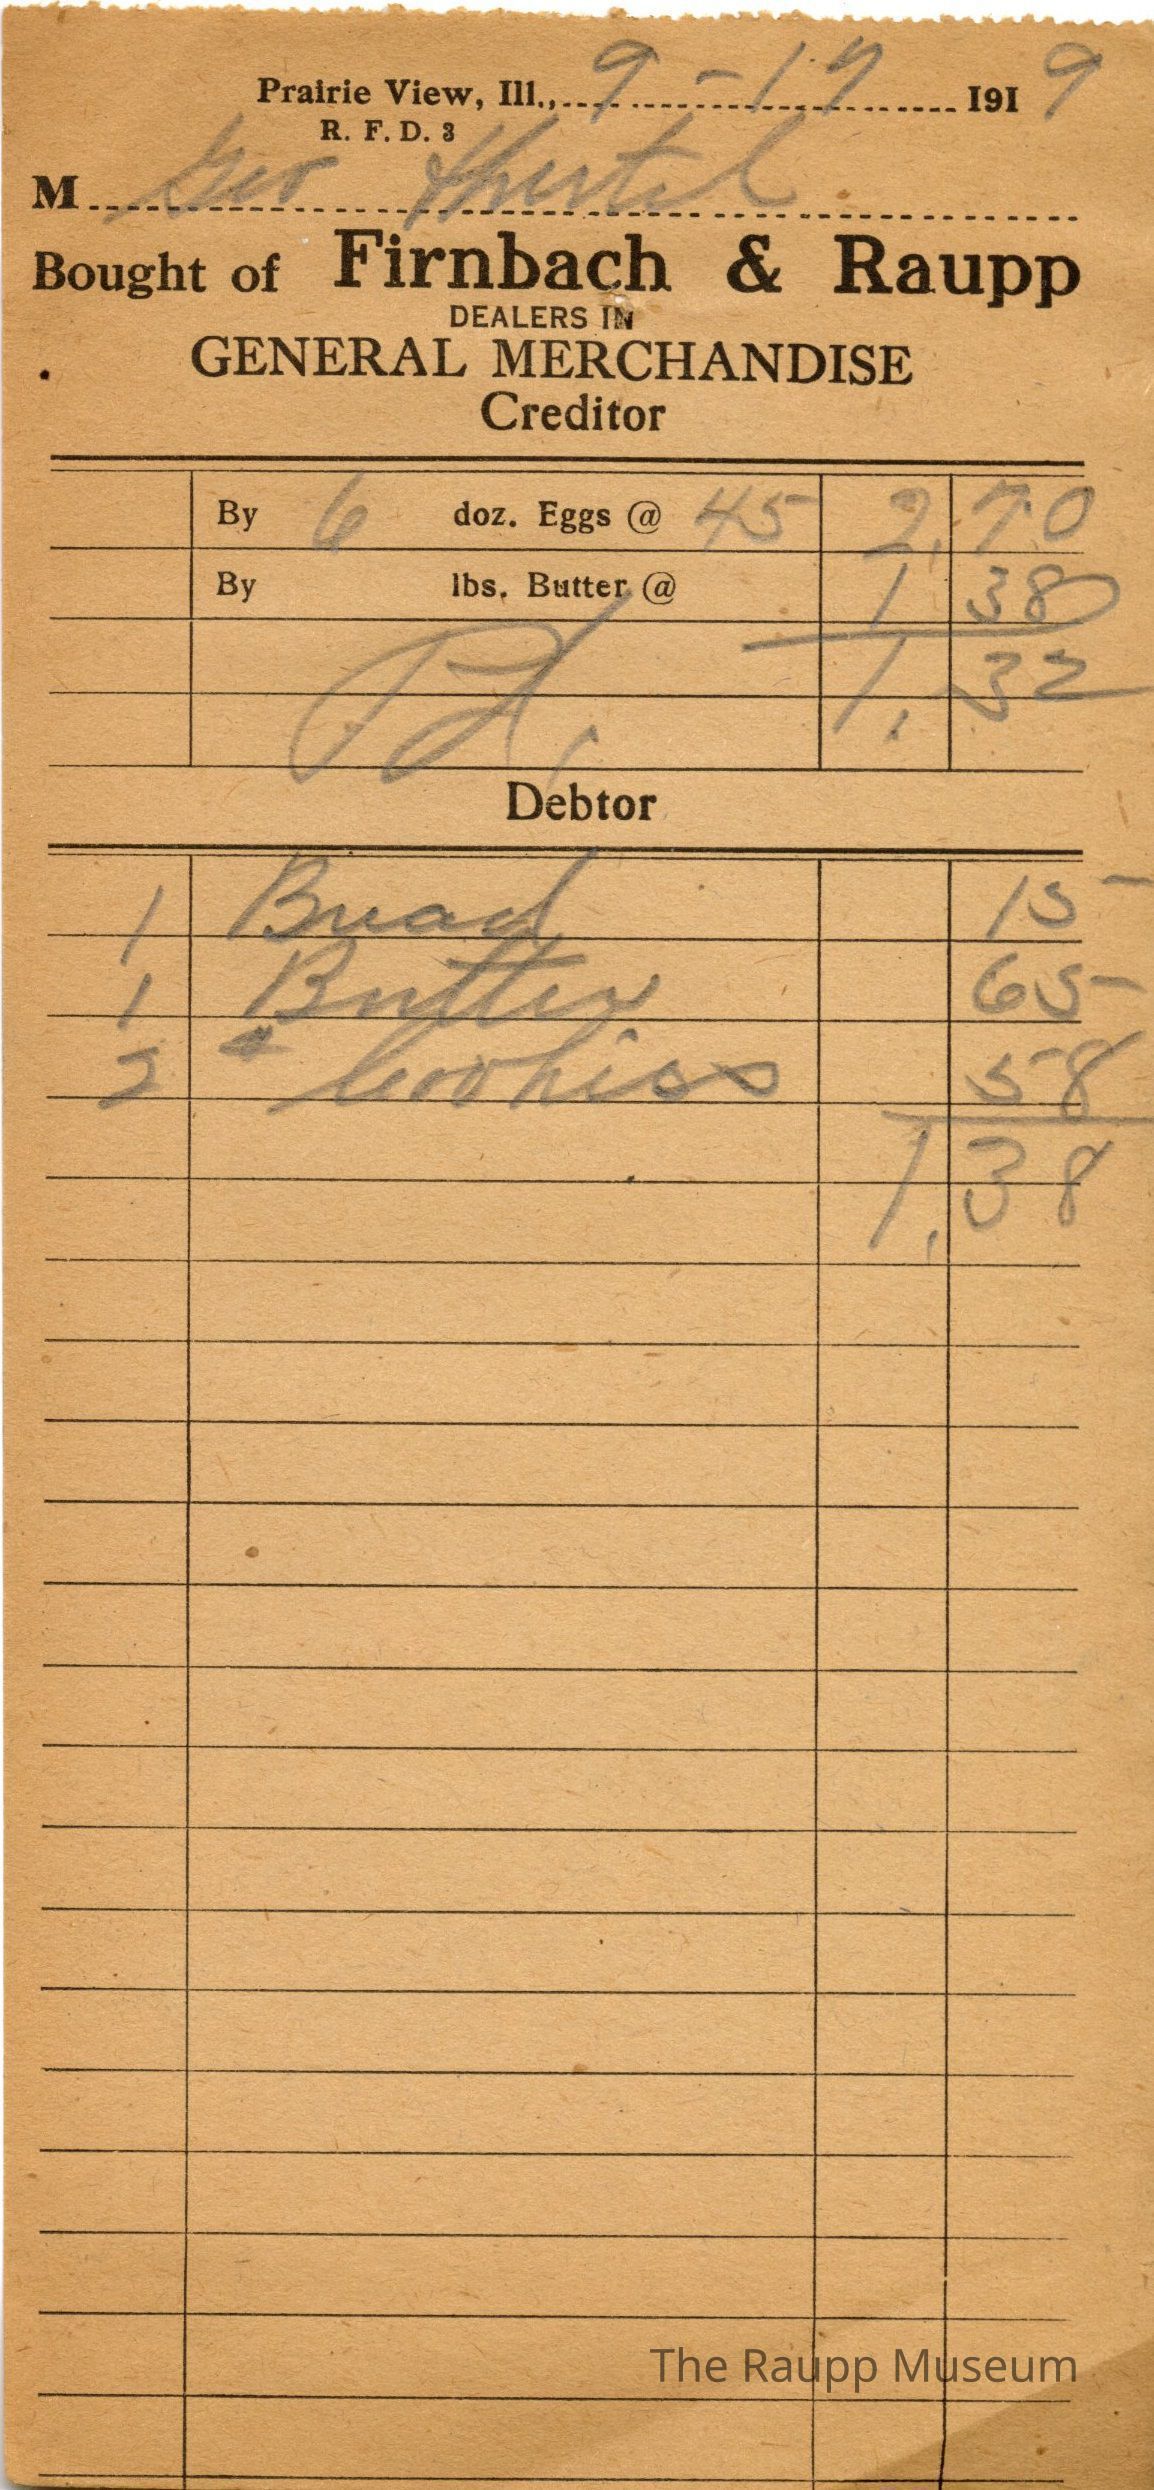 Prairie View, Ill., 9-17 1919
R. F. D. 3
M Geo
Bought of Firnbach & Raupp
DEALERS IN
GENERAL MERCHANDISE
Creditor
By 6 doz. Eggs @ 45 2.70
By lbs. Butter @ 1 38
Pd. 1.32
Debtor
1 Bread 15
1 Butter 65
2 Cookies 58
1.38
The Raupp Museum